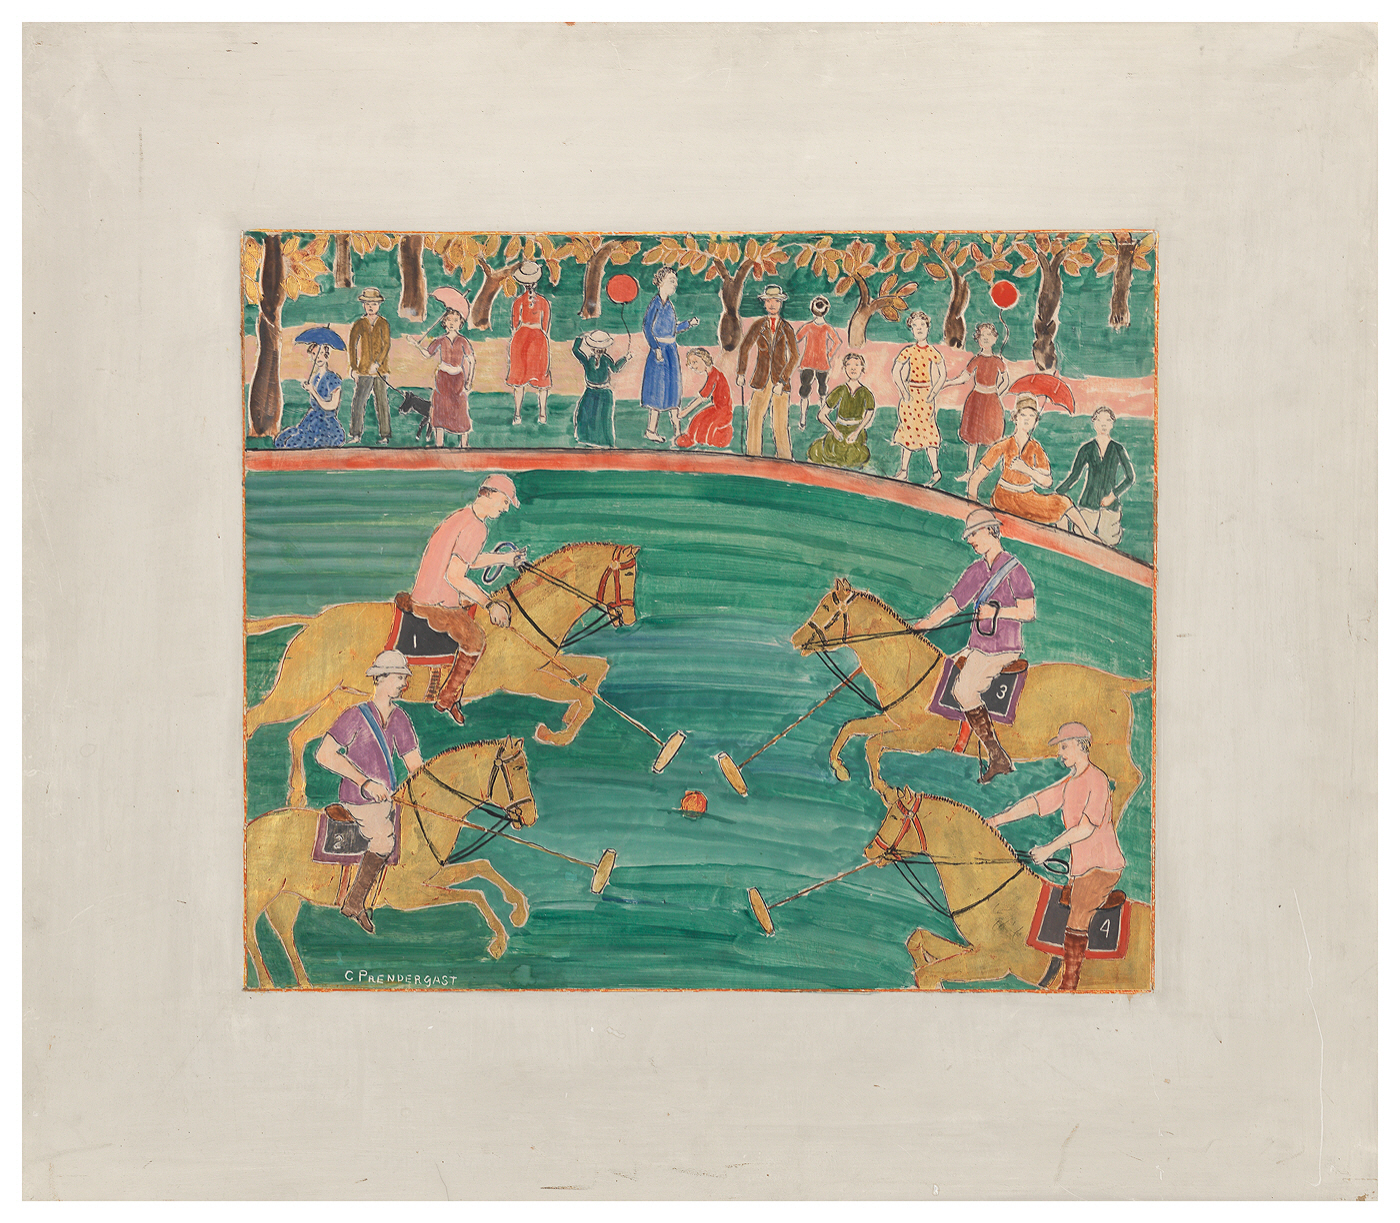 1
3
2
4
C PRENDERGAST